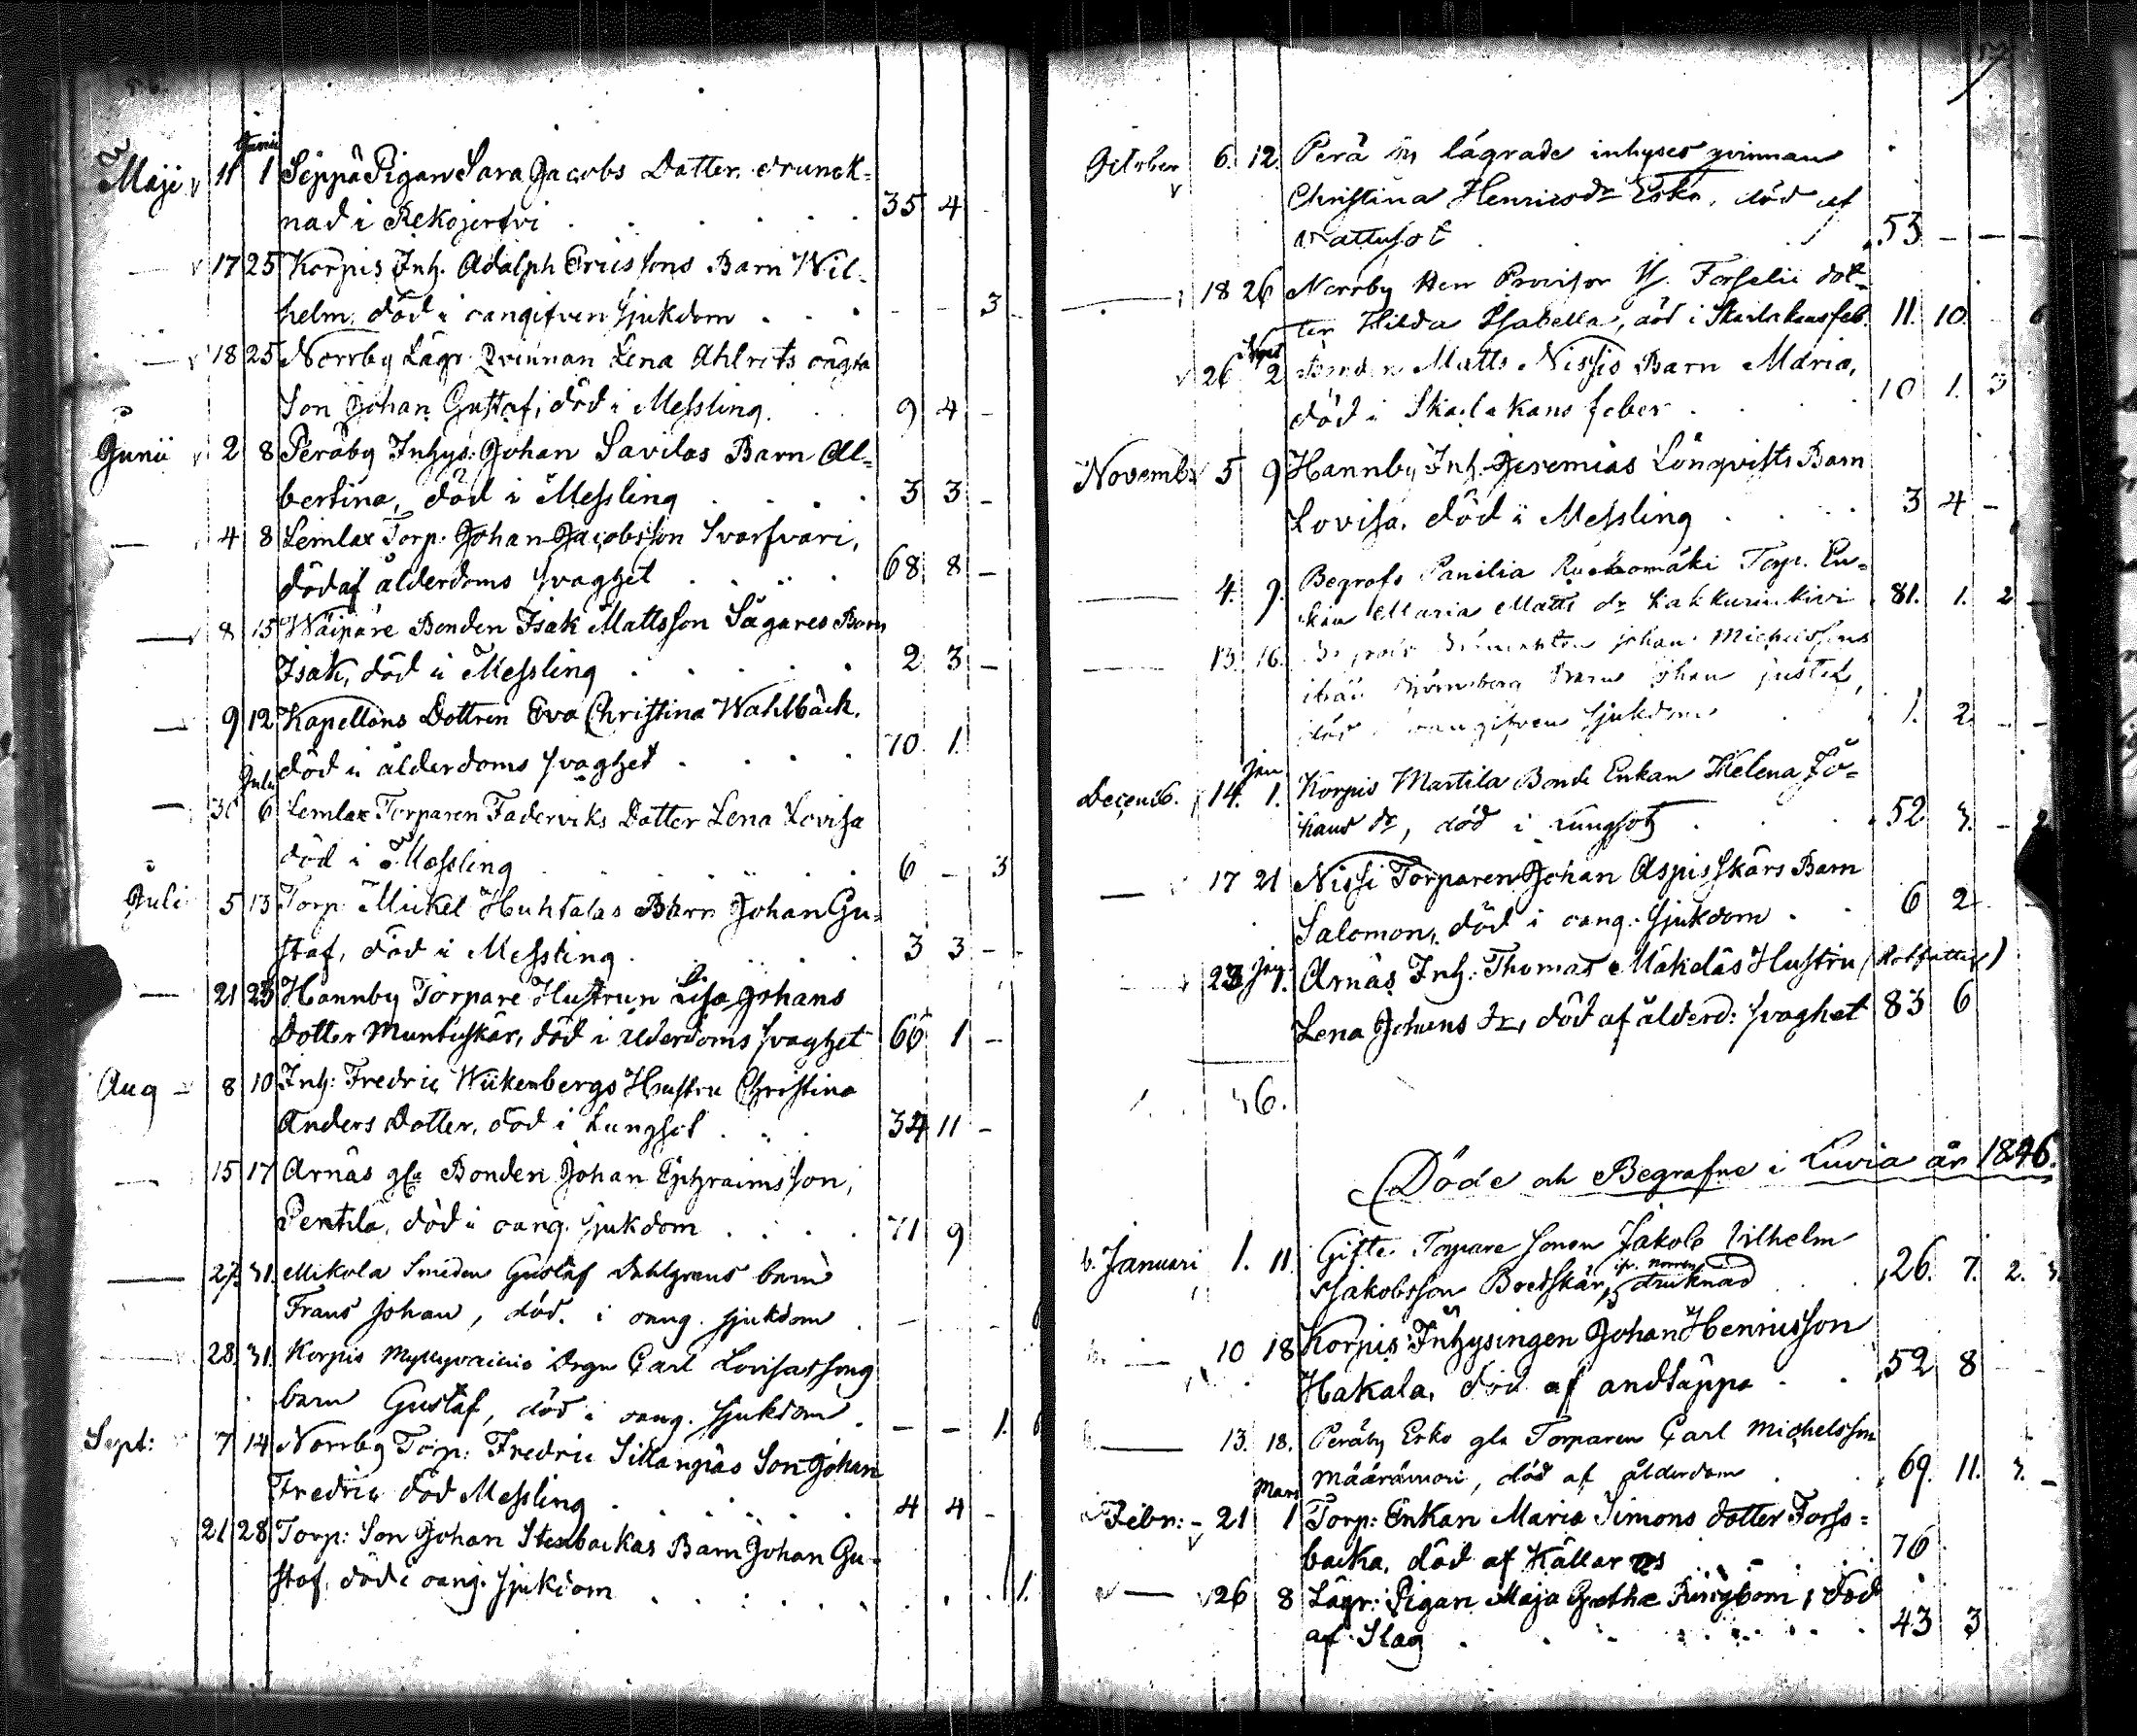 Junii
Maji 11 1 Seppä Pigan Sara Jacobs Dotter drunck=
nad i Rekojerfvi 35 4
17 25 Korpis Inh. Adolph Ericssons Barn Wil-
helm, död i oangifven sjukdom - - 3
18 25 Norrby Lägr. Qvinnan Lena Ahlrots oägta
Son Johan Gustaf, död i Messling. 9 4 -
Junii 2 8 Peräby Inhys: Johan Savilas Barn Al=
bertina, död i Messling 3 3 -
4 8 Lemlax Torp. Johan Jacobsson Svarfvari,
död af ålderdoms svaghet 68 8 -
8 15 Wäipäre Bonden Isak Mattsson Sägares Barn
Isak, död i Messling 2 3 -
9 12 Kapellans Dottren Eva Christina Wahlbäck,
död i ålderdoms svaghet 70 1
Julii
30 6 Lemlax Torparen Faderviks Dotter Lena Lovisa
död i Messling 6 - 3
Juli 5 13 Torp. Mickel Huhtalas Barn Johan Gu=
staf, död i Messling 3 3 -
21 23 Hannby Torpare Hustrun Lisa Johans
Dotter Muntuskär, död i ålderdoms svaghet 66 1 -
Aug 8 10 Inh: Fredric Wikenbergs Hustru Christina
Anders Dotter, död i Lungsot 34 11 -
15 17 Arnäs gla Bonden Johan Ephraimsson,
Pentila, död i oang. sjukdom 71 9
27 31 Mikola Smeden Gustaf Dahlgrens barn
Frans Johan, död i oang. sjukdom - - 6
28 31 Korpis Myllyvainio Drgn Carl Lovisassons
barn Gustaf, död i oang. sjukdom. - - 1. 6
Sept: 7 14 Norrby Torp: Fredric Sillanpääs Son Johan
Fredric död Messling 4 4 -
21 28 Torp: Son Johan Stenbackas Barn Johan Gu-
staf, död i oang. sjukdom 1.
October 6. 12. Perä by lägrade inhyses qvinnan
Christina Henricsdr Esko, död af
Vattusot 53 - - -
18 26 Norrby Herr Provisor H. Forselii dot-
ter Hilda Isabella, död i Skarlakansfeb. 11. 10. 6
Nov
26 2 Bonden Matts Nissis Barn Maria,
död i Skarlakans feber 10 1. 3
Novemb. 5 9 Hannby Inh. Jeremias Lönqvists Barn
Lovisa, död i Messling 3 4 -
4. 9. Begrofs Panilia Torp. En-
kan Maria Matts dr Kakkurinkivi 81. 1. 2
13. 16. Johan Michelssons
Björneberg Barn Johan
död i oangifven sjukdom 1. 2. - -
Jan
Decemb. 14. 1. Korpis Martila Bonde Enkan Helena Jo-
hans dr, död i Lungsot 52 3. -
17 21 Nissi Torparen Johan Aspisskärs Barn
Salomon, död i oang: sjukdom 6 2
23 Jan 1. Arnäs Inh: Thomas Mäkeläs Hustru (Rotfattig)
Lena Johans dr, död af ålderd: svaghet 83 6
36.
Döde och Begrafne i Luvia år 1846.
Januari 1. 11. Gifte Torpare sonen Jakob Vilhelm
Jakobsson Boedskär, drunknad 26. 7. 2. 3.
10 18 Korpis: Inhysingen Johan Henricsson
Hakala, död af andtäppa 52 8
13. 18. Peräby Esko gla Torparen Carl Michelsson
Määrämori, död af ålderdom 69. 11. 3. -
Mars
Febr: 21 1 Torp: Enkan Maria Simons dotter Forss=
backa, död af Kallar 76
26 8 Lägr: Pigan Maja Gretha Ringbom, död
af Slag 43 3